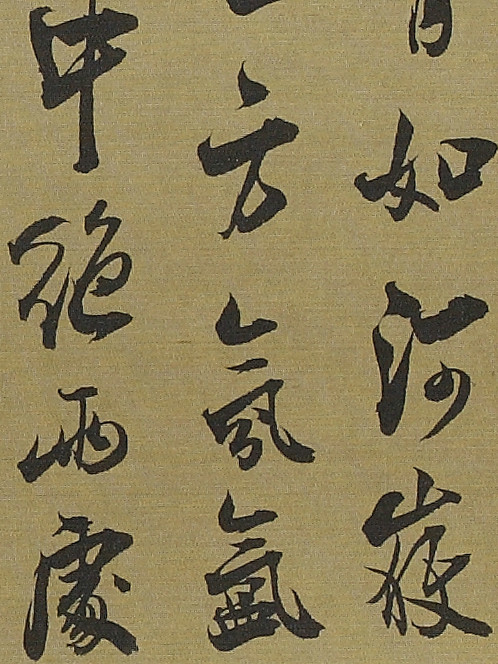 如河嶽
方氛氳
中絕兩處